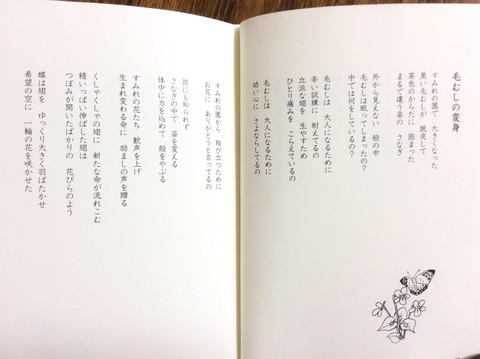 毛むしの変身
すみれの園で 大きくなった
黒い毛むしが 脱皮して
茶色のからだに 固まった
まるで違う姿の さなぎ
外から見えない 殻の中
毛むしは眠ってしまったの?
中では何をしているの?
毛むしは 大人になるために
辛い試練に 耐えてるの
立派な翅を 生やすため
ひとり痛みを こらえているの
毛むしは 大人になるために
幼い心に さよならしてるの
すみれの園から 飛び立つために
お花に ありがとうと言ってるの
誰にも知られず
さなぎの中で 姿を変える
体中に力を込めて 殻をやぶる
すみれの花たち 歓声を上げ
生まれ変わる命に 励ましの声を贈る
くしゃくしゃの翅に 新たな命が流れこむ
精いっぱい伸ばした翅は
つぼみが開いたばかりの 花びらのよう
蝶は翅を ゆっくり大きく羽ばたかせ
希望の空に 一輪の花を咲かせた